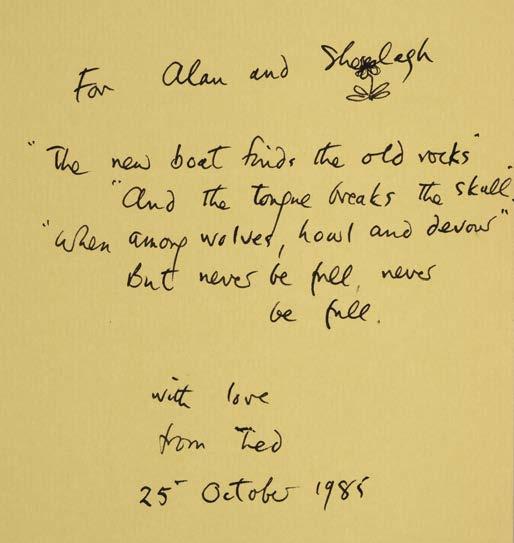 For Alan and Sheelagh
"The new boat finds the old rocks"
"And the tongue breaks the skull."
"When among wolves, howl and devour"
But never be full, never
be full.
with love
from Ted
25 October 1985